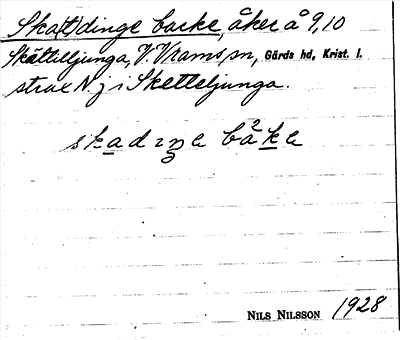 Ska(t)dinge backe, åker å 9,10
Skättilljunga, V. Vrams sn, Gärds hd, Krist. l.
strax N j i Sketteljunga.
skadıŋe båke
NILS NILSSON 1928